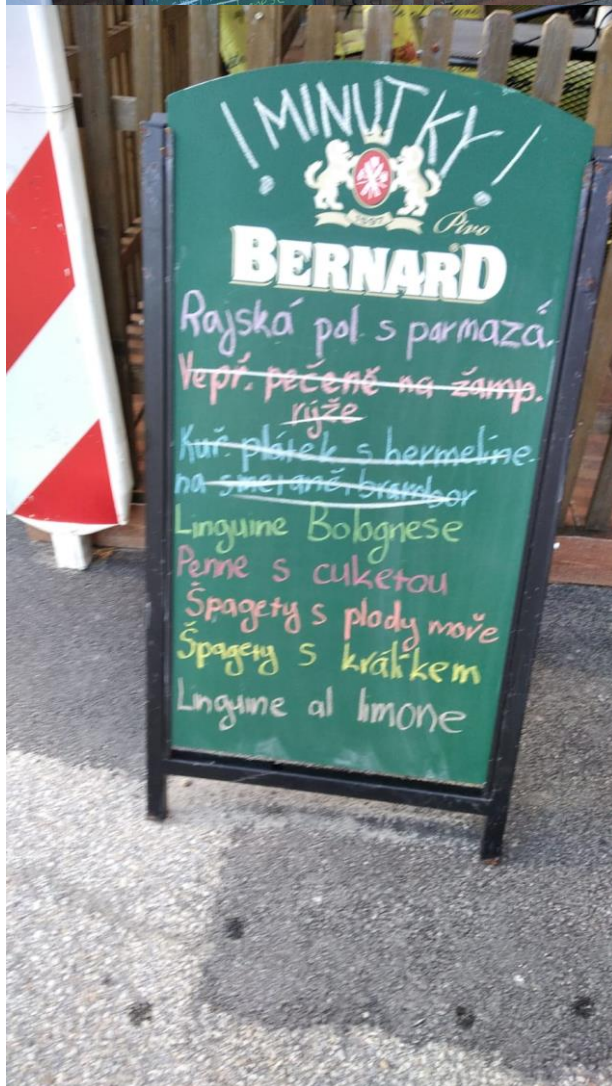 ! MINUTKY !
1597
Pivo
BERNARD
Rajská pol. s parmazá.
Vepř. pečeně na žamp.
rýže
Kuř. plátek s hermelíne.
na smetaně, brambor
Linguine Bolognese
Penne s cuketou
Špagety s plody moře
Špagety s králíkem
Linguine al limone